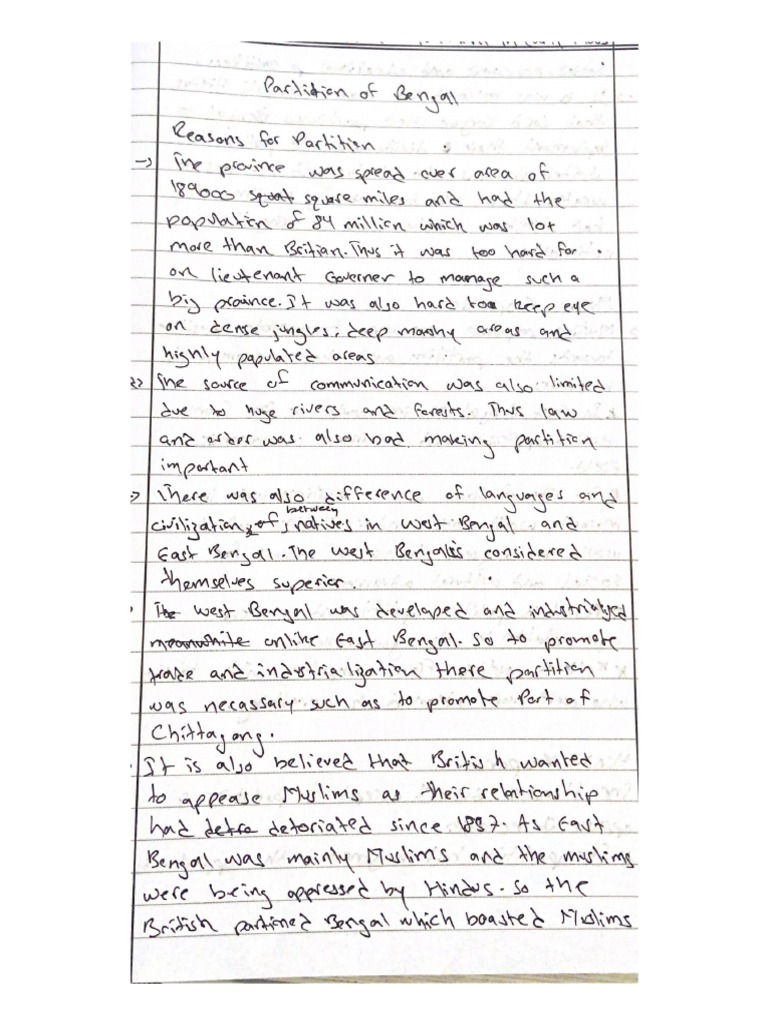 Partition of Bengal
Reasons for Partition
→ The province was spread over area of
189000 squat square miles and had the
population of 84 million which was lot
more than Britian. Thus it was too hard for
on lieutenant Governer to manage such a
big province. It was also hard to keep eye
on dense jungles, deep marshy areas and
highly populated areas
2) The source of communication was also limited
due to huge rivers and forests. Thus law
and order was also bad making partition
important
→ There was also difference of languages and
civilization, of between natives in West Bengal and
East Bengal. The West Bengalis considered
themselves superior.
The West Bengal was developed and industrialized
meanwhile unlike East Bengal. So to promote
trade and industrialization there partition
was necassary such as to promote Port of
Chittagong.
It is also believed that British wanted
to appease Muslims as their relationship
had detre detoriated since 1857. As East
Bengal was mainly Muslims and the muslims
were being oppressed by Hindus. So the
British partioned Bengal which boasted Muslims